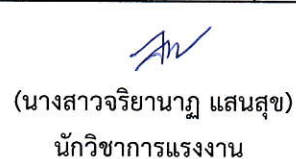 (นางสาวจริยานาฏ แสนสุข)
นักวิชาการแรงงาน